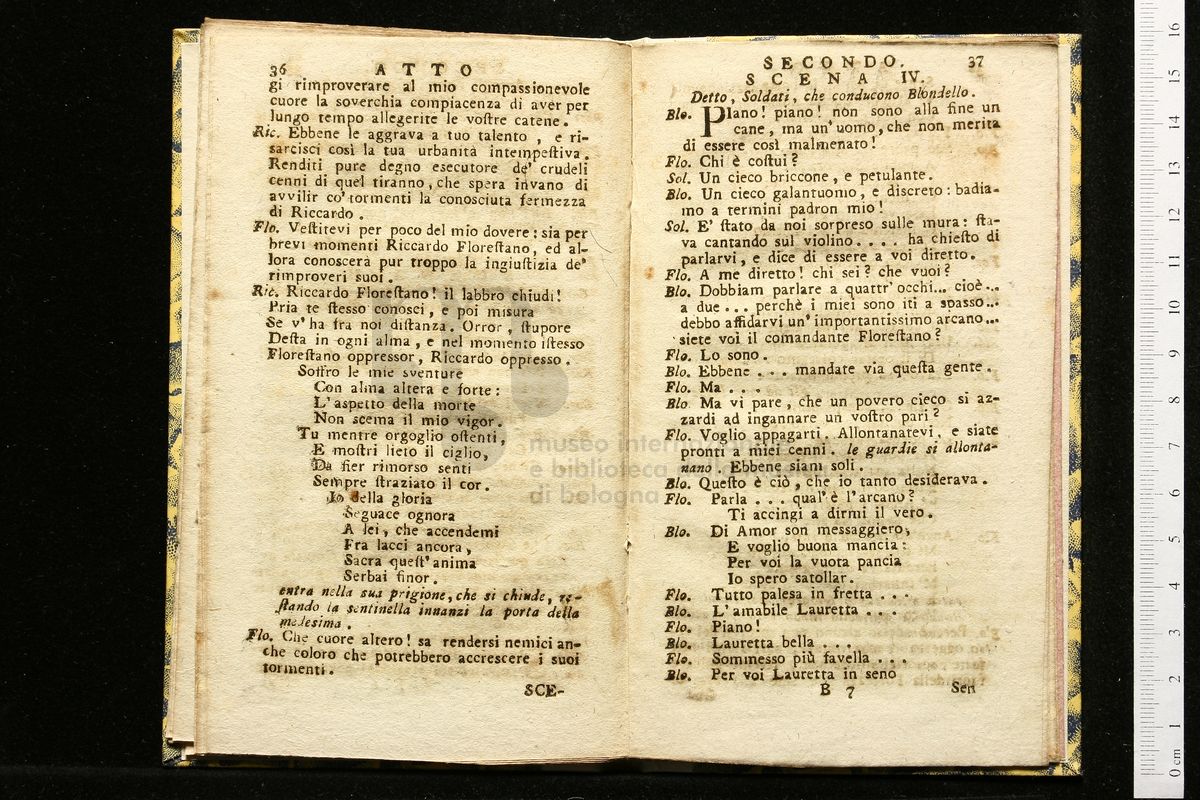 36 ATTO
gi rimproverare al mio compassionevole
cuore la soverchia compiacenza di aver per
lungo tempo allegerite le voſtre catene.
Ric. Ebbene le aggrava a tuo talento , e ri-
sarcisci così la tua urbanità intempeſtiva.
Renditi pure degno esecutore de' crudeli
cenni di quel tiranno, che spera invano di
avvilir co' tormenti la conosciuta fermezza
di Riccardo .
Flo. Veſtitevi per poco del mio dovere : sia per
brevi momenti Riccardo Floreſtano, ed al-
lora conoscerà pur troppo la ingiuſtizia de'
rimproveri suoi .
Ric. Riccardo Floreſtano! il labbro chiudi!
Pria te ſtesso conosci, e poi misura
Se v'ha fra noi diſtanza. Orror , ſtupore
Deſta in ogni alma , e nel momento iſtesso
Floreſtano oppressor, Riccardo oppresso .
Soffro le mie sventure
Con alma altera e forte :
L' aspetto della morte
Non scema il mio vigor .
Tu mentre orgoglio oſtenti,
E moſtri lieto il ciglio,
Da fier rimorso senti
Sempre ſtraziato il cor.
Io della gloria
Seguace ognora
A lei, che accendemi
Fra lacci ancora ,
Sacra queſt' anima
Serbai finor .
entra nella sua prigione, che si chiude, re-
ſtando la sentinella innanzi la porta della
medesima .
Flo. Che cuore altero! sa rendersi nemici an-
che coloro che potrebbero accrescere i suoi
tormenti .
SCE-
SECONDO. 37
SCENA IV.
Detto, Soldati, che conducono Blondello.
Blo. Piano! piano! non sono alla fine un
cane, ma un' uomo, che non merita
di essere così malmenato!
Flo. Chi è coſtui?
Sol. Un cieco briccone , e petulante .
Blo. Un cieco galantuomo , e discreto : badia-
mo a termini padron mio!
Sol. E' ſtato da noi sorpreso sulle mura : ſta-
va cantando sul violino . . . . ha chieſto di
parlarvi , e dice di essere a voi diretto .
Flo. A me diretto! chi sei? che vuoi?
Blo. Dobbiam parlare a quattr' occhi... cioè...
a due . . . perchè i miei sono iti a spasso...
debbo affidarvi un' importantissimo arcano...
siete voi il comandante Floreſtano?
Flo. Lo sono .
Blo. Ebbene . . . mandate via queſta gente .
Flo. Ma . . .
Blo Ma vi pare , che un povero cieco si az-
zardi ad ingannare un voſtro pari?
Flo. Voglio appagarti . Allontanatevi , e siate
pronti a miei cenni . le guardie si allonta-
nano . Ebbene siam soli .
Blo. Queſto è ciò , che io tanto desiderava .
Flo. Parla . . . qual' è l' arcano?
Ti accingi a dirmi il vero .
Blo. Di Amor son messaggiero,
E voglio buona mancia :
Per voi la vuota pancia
Io spero satollar .
Flo. Tutto palesa in fretta . . .
Blo. L' amabile Lauretta . . . .
Flo. Piano!
Blo. Lauretta bella . . .
Flo. Sommesso più favella . . .
Blo. Per voi Lauretta in seno
B 7 Sen
museo internaz
e biblioteca
di bologna
16
15
14
13
12
11
10
9
8
7
6
5
4
3
2
1
0 cm